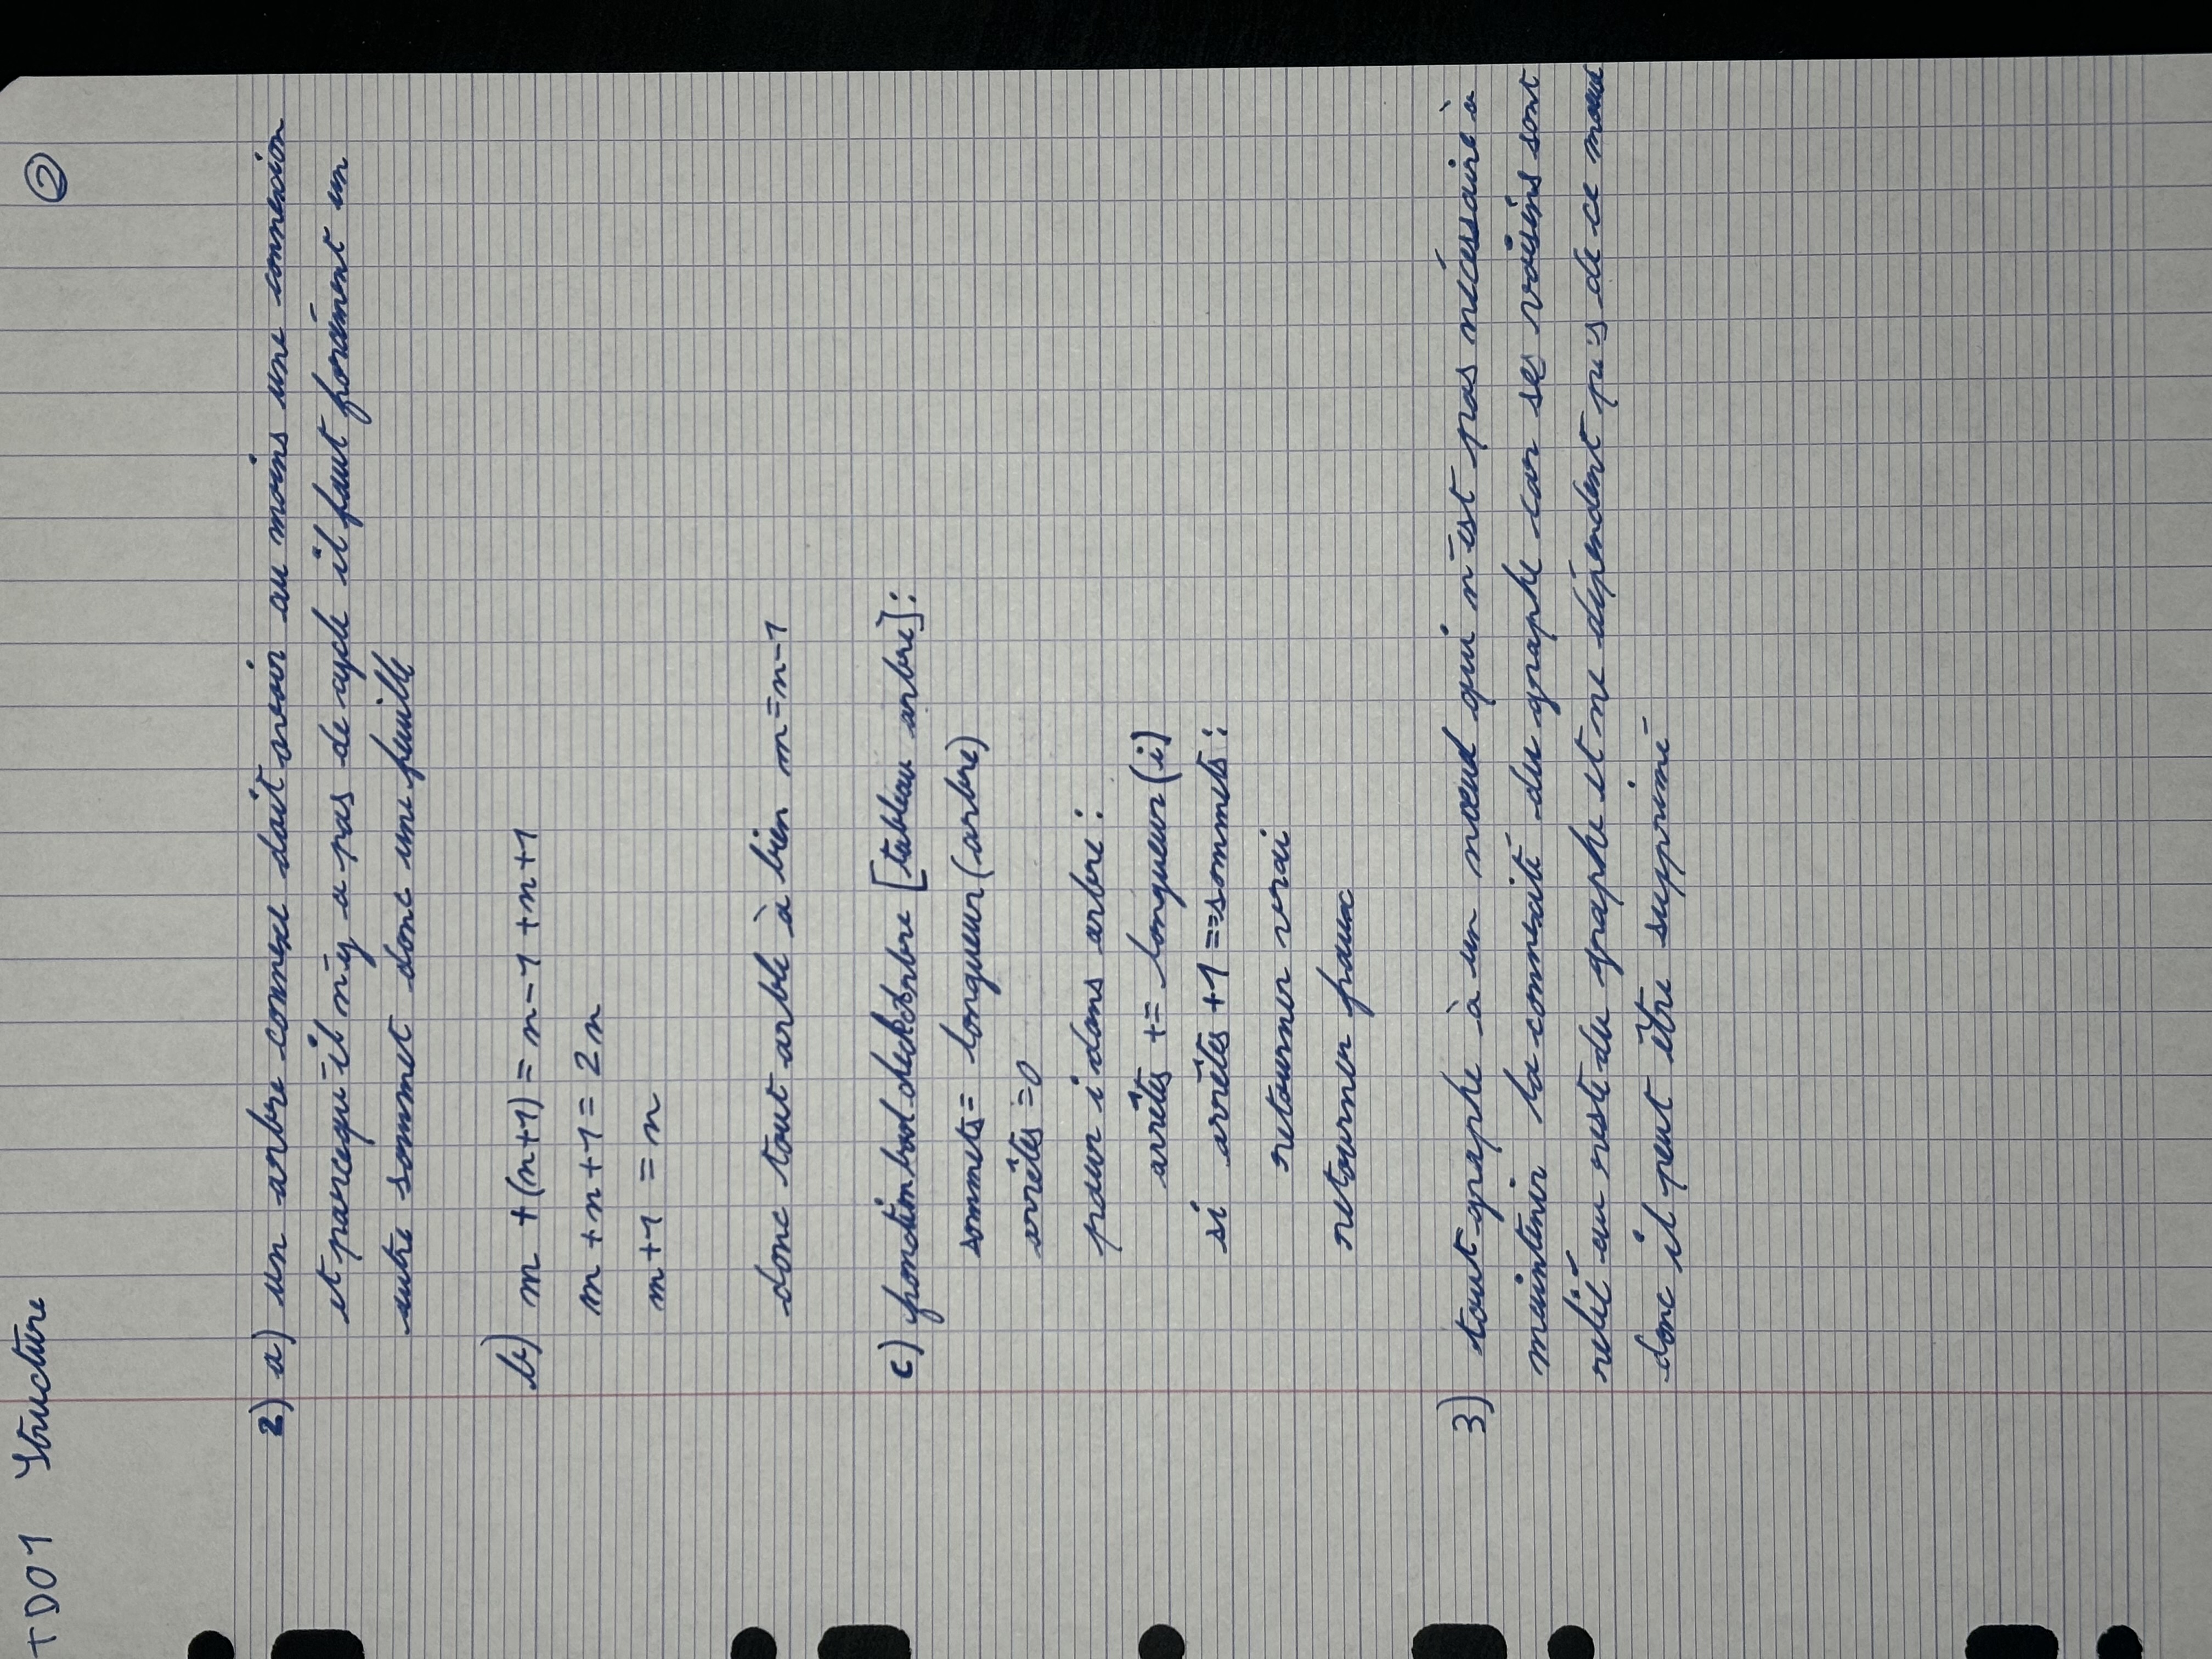 TD01 Structure
②
2) a) un arbre connexe doit avoir au moins une connexion
et parcequ'il n'y a pas de cycle il faut forcément un
autre sommet donc une feuille
b) m + (n+1) = n-1 + n+1
m + n + 1 = 2n
m+1 = n
donc tout arble à bien m=n-1
c) fonction bool checkArbre [tableau arbre]:
sommets = longueur(arbre)
arrêtes = 0
pour i dans arbre :
arrêtes += longueur(i)
si arrêtes +1 == sommets :
retourner vrai
retourner faux
3) tout graphe à un nœud qui n'est pas nécessaire à
maintenir la connexité du graphe car ses voisins sont
relié au reste du graphe et ne dépendent pas de ce nœud
donc il peut être supprimé